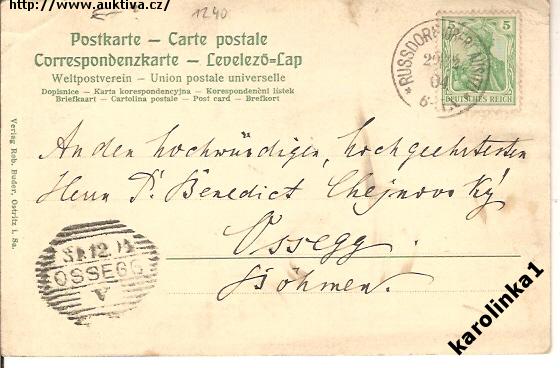 http://www.auktiva.cz/
1240
Postkarte – Carte postale
Correspondenzkarte – Levelező=Lap
Weltpostverein – Union postale universelle
Dopisnice – Karta korespondencyjna – Korespondenční lístek
Briefkaart – Cartolina postale – Post card – Brefkort
5 5
DEUTSCHES REICH
RUSSDORF
04
An den hochwürdigen, hochgeehrtesten
Herrn P. Benedict Chejnovský
Ossegg
Böhmen.
12
OSSEGG
Verlag Rob. Buder, Ostritz i. Sa.
karolinka1